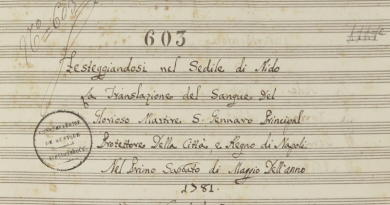 Nº=603
603
Festeggiandosi nel Sedile di Nido
La Translazione del Sangue del
Glorioso Martire S. Gennaro Principal
Protettore Della Città, e Regno di Napoli
Nel Primo Sabato di Maggio Dell'anno
1781.